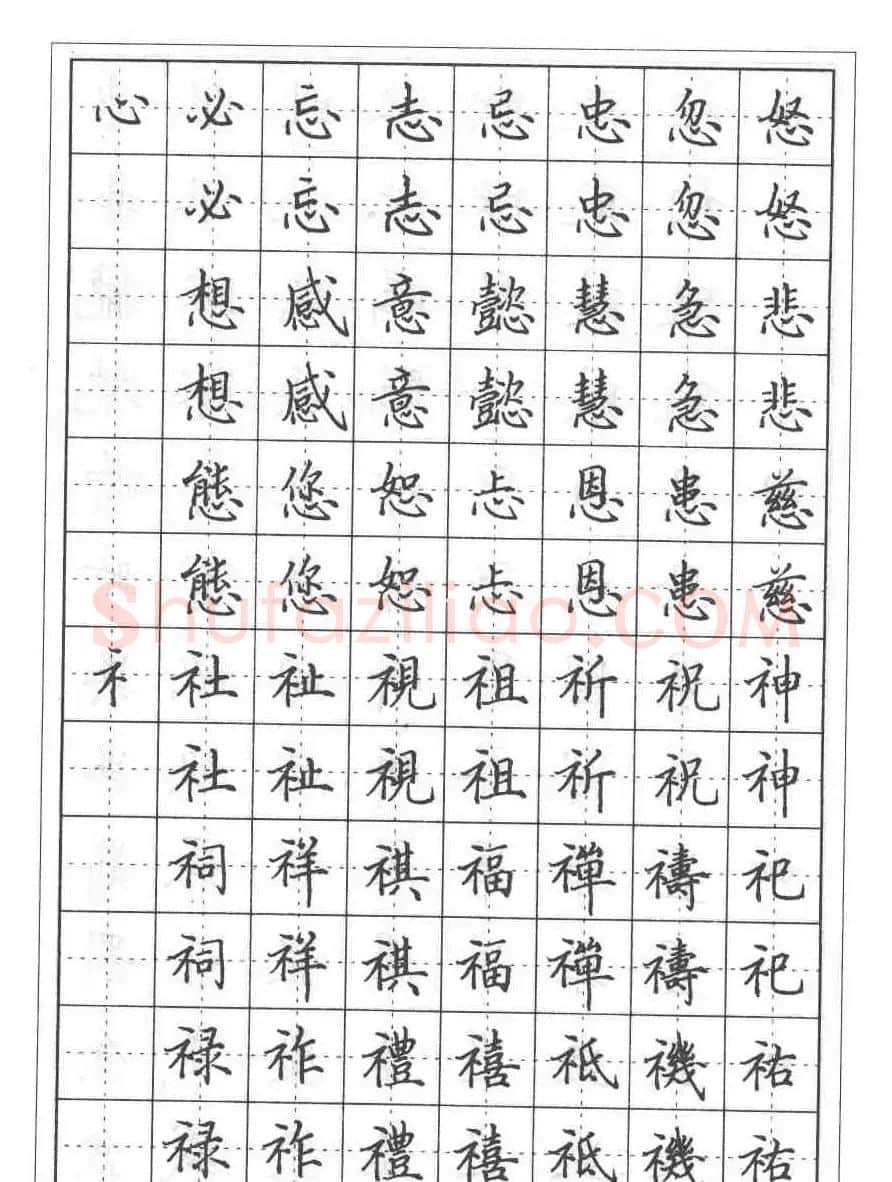 心 必 忘 志 忌 忠 忽 怒
必 忘 志 忌 忠 忽 怒
想 感 意 懿 慧 急 悲
想 感 意 懿 慧 急 悲
態 您 恕 忐 恩 患 慈
態 您 恕 忐 恩 患 慈
礻 社 祉 視 祖 祈 祝 神
社 祉 視 祖 祈 祝 神
祠 祥 祺 福 禪 禱 祀
祠 祥 祺 福 禪 禱 祀
禄 祚 禮 禧 祗 禨 祐
禄 祚 禮 禧 祗 禨 祐
Shufaziliao.COM